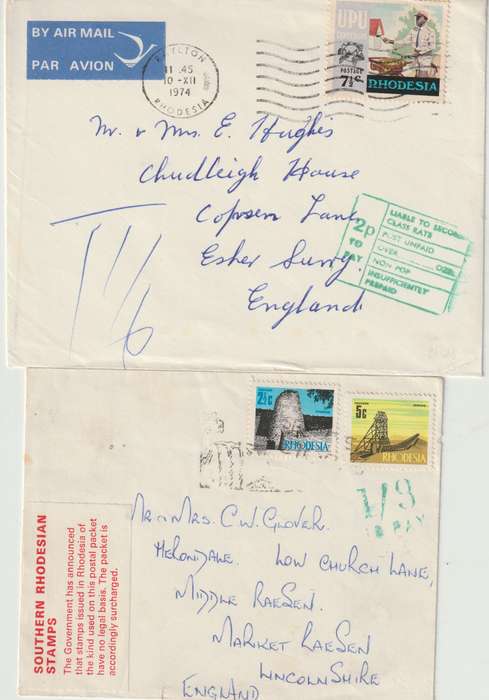 BY AIR MAIL
PAR AVION
11 .45
10 -XII
1974
RHODESIA
UPU
POSTAGE
7½c
RHODESIA
Mr. & Mrs. E. Hughes
Chudleigh House
Copsen Lane
Esher Surrey
England
T/6
2p
TO
PAY
LIABLE TO SECOND
CLASS RATE
POST UNPAID
OVER
OZS.
NON POP
INSUFFICIENTLY
PREPAID
2½c
RHODESIA
5c
RHODESIA
1/3
SOUTHERN RHODESIAN
STAMPS
The Government has announced
that stamps issued in Rhodesia of
the kind used on this postal packet
have no legal basis. The packet is
accordingly surcharged.
MR & MRS. C.W. GLOVER.
LOW CHURCH LANE,
MIDDLE RAESEN.
MARKET RAESEN
LINCOLNSHIRE
ENGLAND